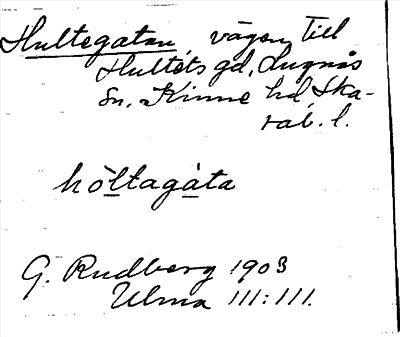 Hultegatan, vägen till
Hultets gd, Lugnås
sn, Kinne hd, Ska-
rab. l.
hòltagàta
G. Rudberg 1903
Ulma 111:111.